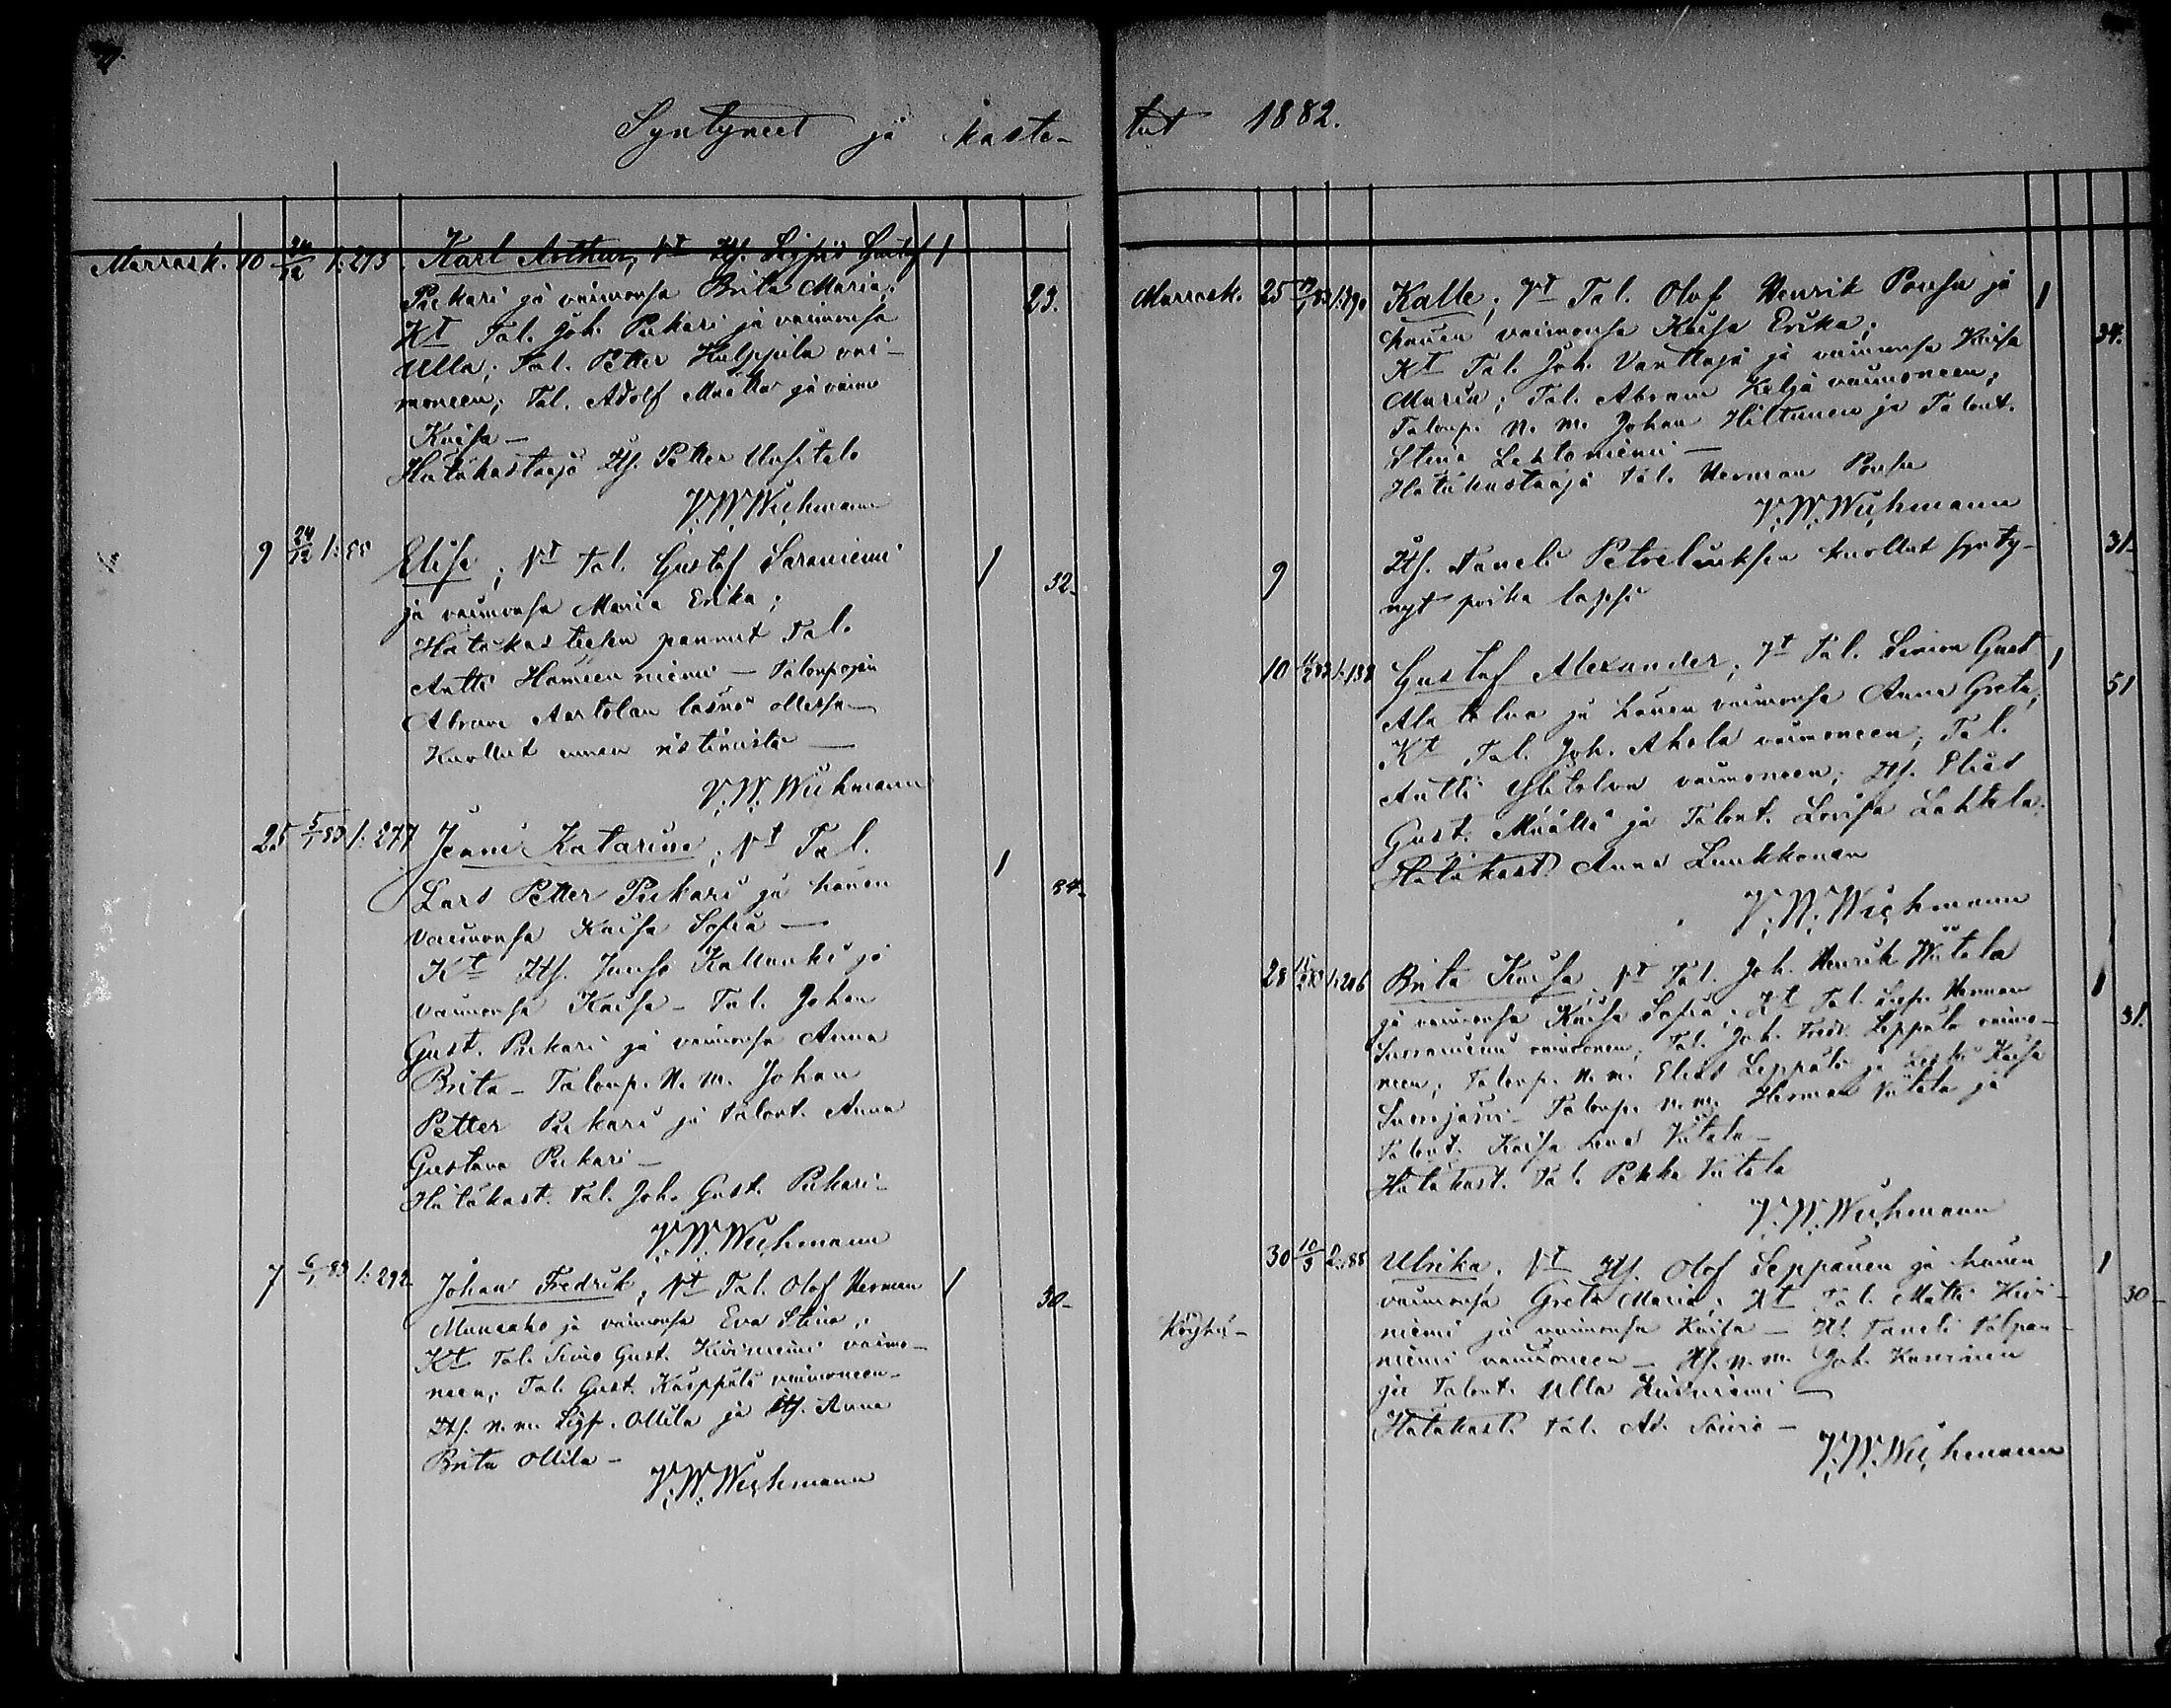 Syntyneet ja kaste- tut 1882.
Marrask. 10 24/12 1:273. Karl Arthur; Vt Its. Sigfrid Gustaf 1
Pekkari ja vaimonsa Brita Maria; 23.
Kt Tal. Joh. Pekkari ja vaimonsa
Ulla; Tal. Petter Kulppila vai-
moneen; Tal. Adolf Määttä ja vaimo
Kaisa –
Hätäkastaja Its. Petter Uusitalo
V. W. Wichmann
9 24/12 1:88 Elise; Vt Tal. Gustaf Saraniemi 1
ja vaimonsa Maria Erika; 32.
Hätäkasteesen pannut Tal.
Antti Hämeenniemi – Talonpojan
Abram Aartolan läsnä ollessa –
Kuollut ennen ristimistä –
V. W. Wichmann
25 5/1 83 1:277 Jenni Katarina; Vt Tal. 1
Lars Petter Pekkari ja hänen 34.
vaimonsa Kaisa Sofia –
Kt Its. Junso Kallunki ja
vaimonsa Kaisa – Tal. Johan
Gust. Pekkari ja vaimonsa Anna
Brita – Talonp. N. m. Johan
Petter Pekkari ja Talont. Anna
Gustava Pekkari –
Hätäkast. Tal. Joh. Gust. Pekkari –
V. W. Wichmann
7 6/1 83 1:292 Johan Fredrik; Vt Tal. Olof Herman 1
ja vaimonsa Eva Stina; 30.
Kt Tal. Gust. Kiviniemi vaimo-
neen; Tal. Gust. vaimoneen –
Its. n. m. Sigf. Ollila ja Its. Anna
Brita Ollila –
V. W. Wichmann
Marrask. 25 1:290 Kalle; Vt Tal. Olof Henrik Pousu ja 1
hänen vaimonsa Kaisa Erika; 34.
Kt Tal. Joh. Vanttaja ja vaimonsa Kaisa
Maria; Tal. Abram Kelja vaimoneen;
Talonp. N. m. Johan Hiltunen ja Talont.
Stina Lehtoniemi –
Hätäkastaaja Tal. Herman Pousu
V. W. Wichmann
9 Its. Taneli kuollut synty- 31.
nyt poika lapsi
10 1:138 Gustaf Alexander; Vt Tal. Simon Gust. 1
Alatalva ja hänen vaimonsa Anna Greta; 51
Kt Tal. Joh. Ahola vaimoneen; Tal.
Antti Ylitalva vaimoneen; Its. Elias
Gust. Määttä ja Talont. Lovisa Lahtela.
Hätäkast. Anna Luukkonen
V. W. Wichmann
28 1:206 Brita Kaisa Vt Tal. Joh. Henrik Wiitala 1
ja vaimonsa Kaisa Sofia; Kt Tal. Herman 31.
vaimoneen; Tal. Joh. Fredr. Leppälä vaimo-
neen; Talonp. N. m. Elias Leppälä ja Kaisa
Suonjärvi – Talonp. n. m. Herman Viitala ja
Talont. Kaisa Viitala –
Hätäkast. Tal. Pekka Viitala
V. W. Wichmann
30 10/3 2:88 Ulrika. Vt Its. Olof Seppänen ja hänen 1
vaimonsa Greta Maria; Kt Tal. Matti Kivi- 30
Köyhä –
niemi ja vaimonsa Kaisa – Its. Taneli
niemi vaimoneen – Its. n. m. Joh.
ja Talont. Ulla Kiviniemi –
Hätäkast. Tal. Ad. –
V. W. Wichmann